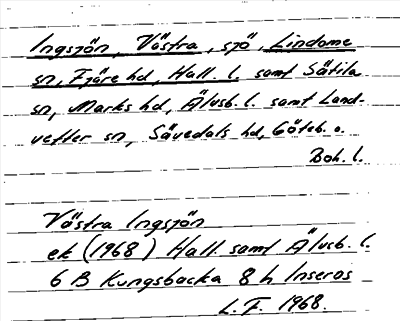 Ingsjön, Västra, sjö, Lindome
sn, Fjäre hd, Hall. l. samt Sätila
sn, Marks hd, Älvsb. l. samt Land-
vetter sn, Sävedals hd, Göteb. o.
Boh. l.
Västra Ingsjön
ek (1968) Hall. samt Älvsb. l.
6 B Kungsbacka 8 h Inseros
L. F. 1968.